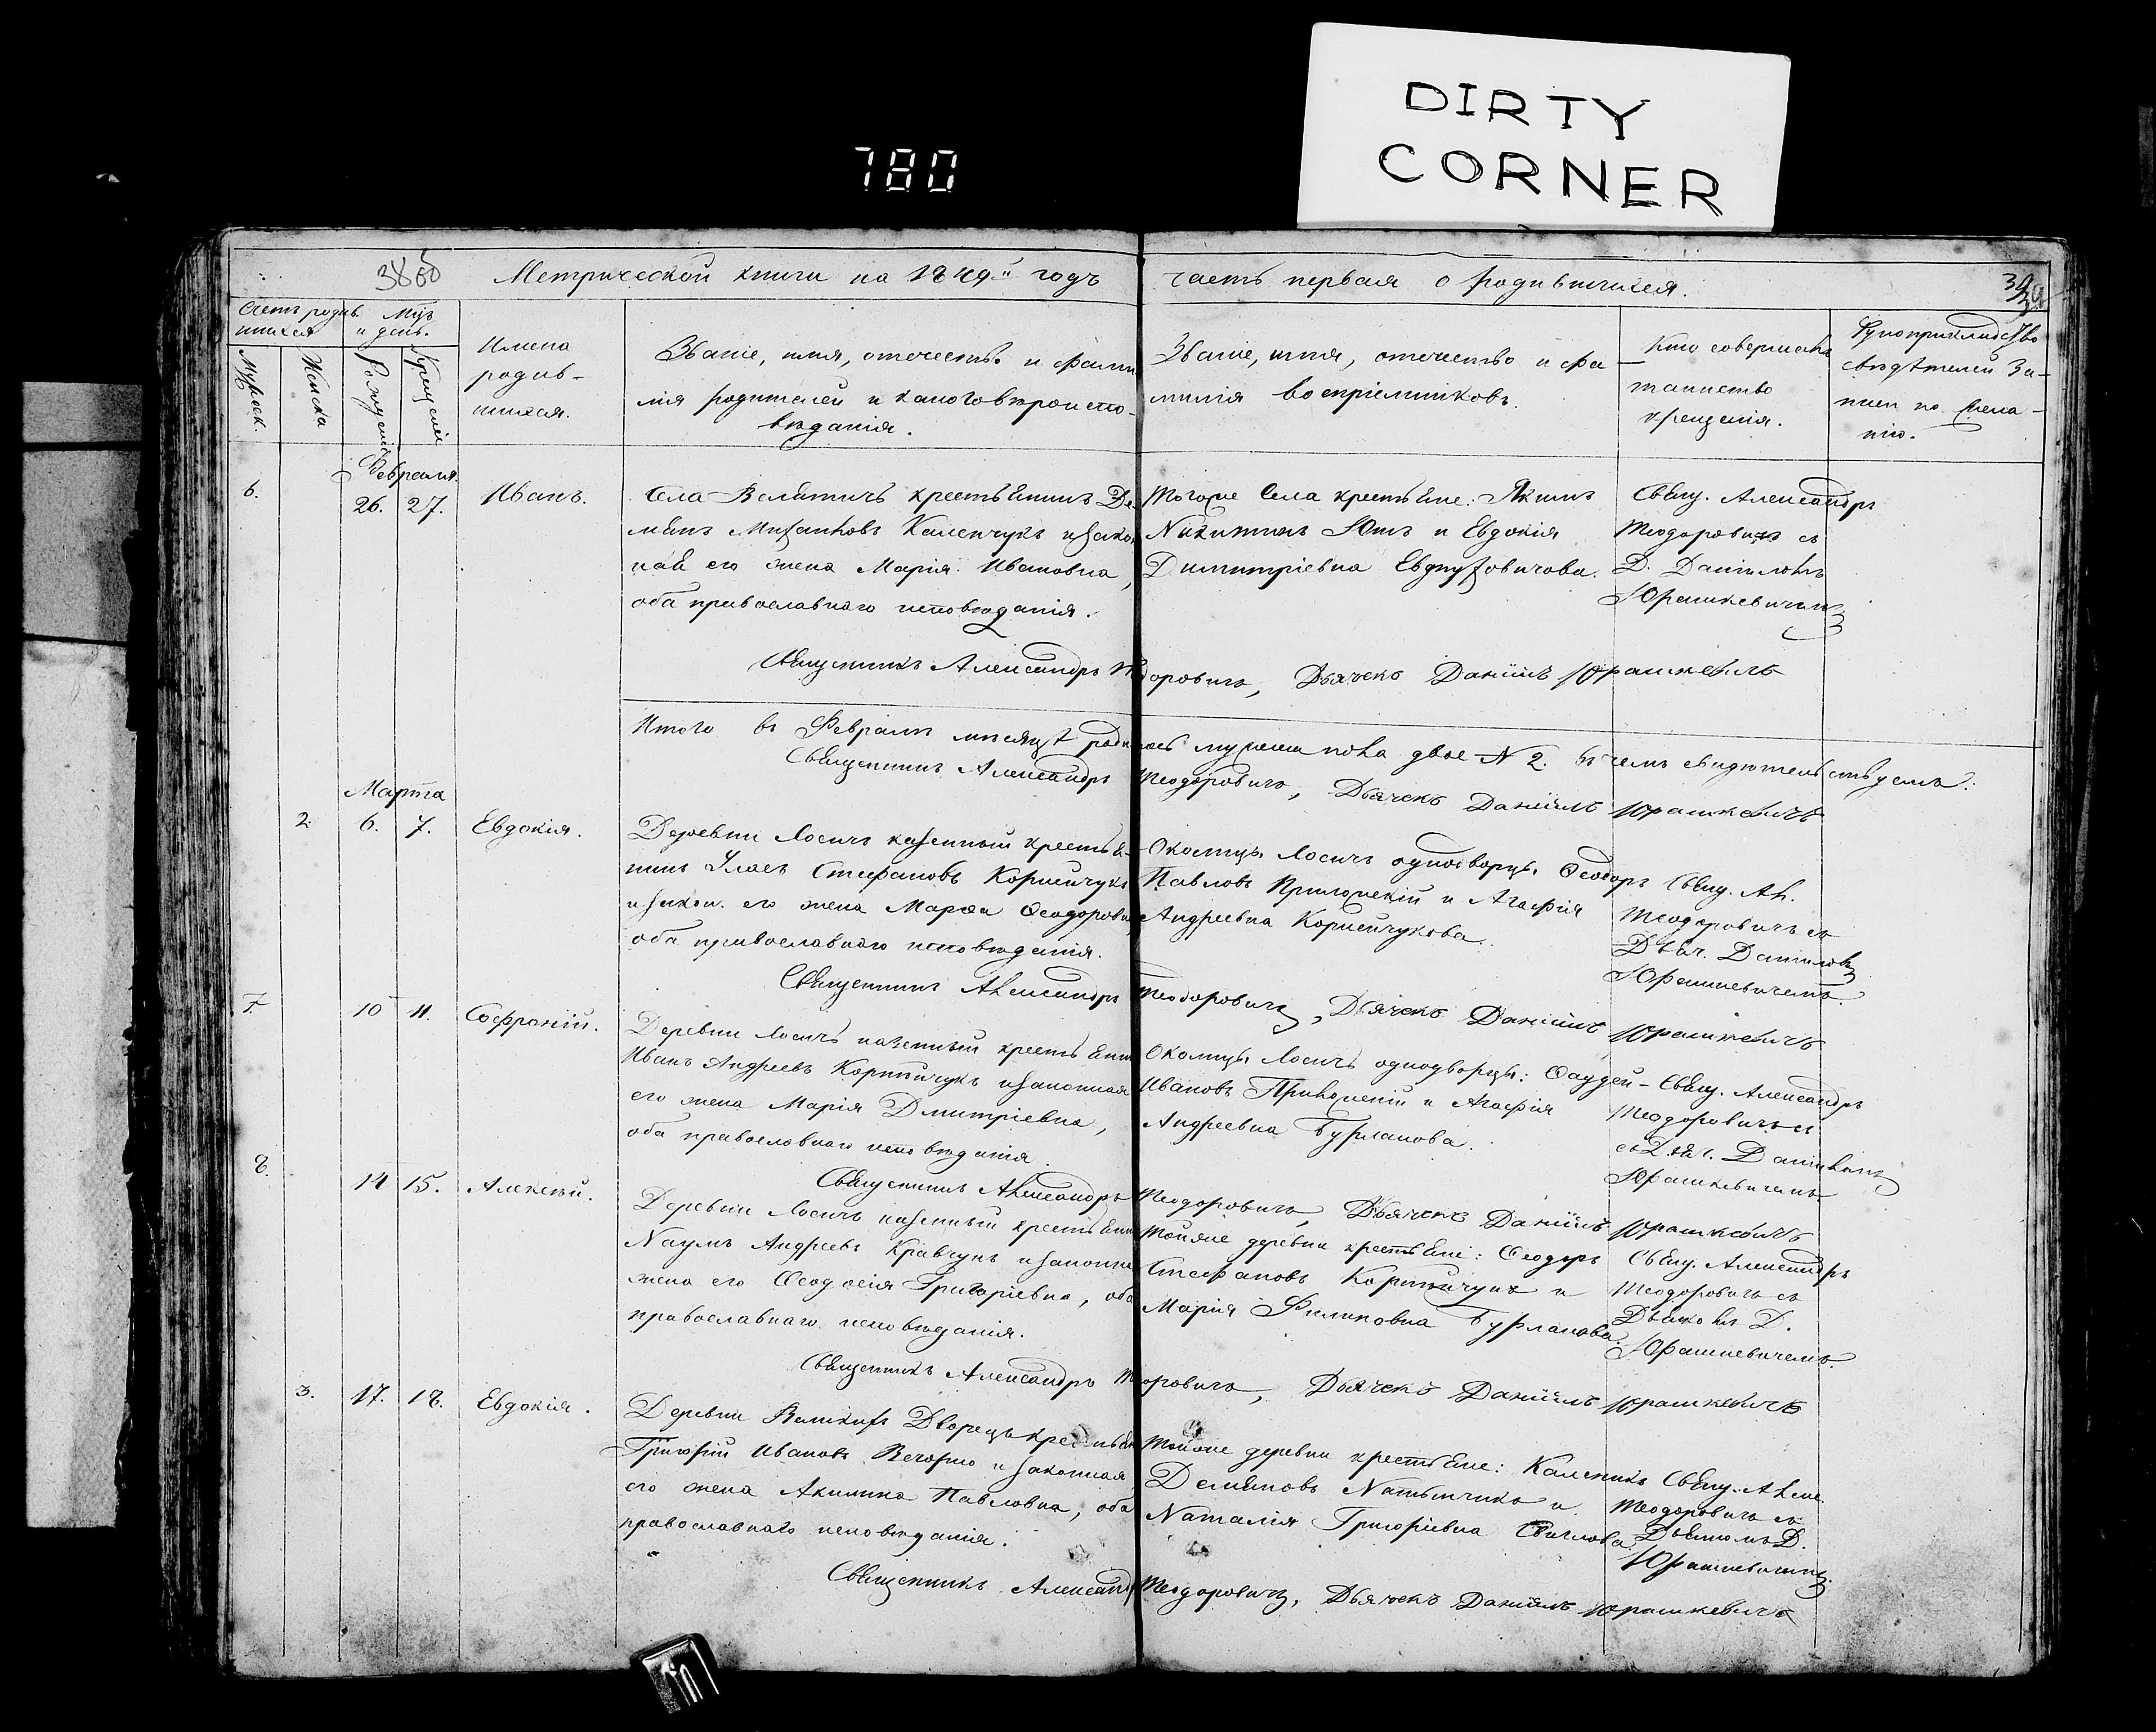 DIRTY
CORNER
780
Метрической книги на 1849й годъ часть первая о родившихся.
Счетъ родив-
шихся
Мцъ
и день.
Мужеск.
Женска
Рожденія
Крещенія
Имена
родив-
шихся.
Званіе, имя, отечество и фами
лія родителей и какого вѣроиспо-
вѣданія.
Званіе, имя, отечество и фа
милія воспріемниковъ.
Кто совершалъ
таинство
крещенія.
Рукоприкладство
свидѣтелей за-
писи по жела-
нію.
Февраля
6. 26. 27. Иванъ.
Села Велятичъ крестьянинъ Де-
его жена Марія Ивановна,
оба православнаго исповѣданія.
Тогоже села крестьяне: Якимъ
Никитинъ и Евдокія
Димитріевна
Свящ. Александръ
Теодоровичъ съ
Д. Даніиломъ
Юрашкевичемъ
Священникъ Александръ Теодоровичъ, Дьячекъ Даніилъ Юрашкевичъ
Итого въ Февралѣ мѣсяцѣ родилось мужеска пола двое № 2. въ чемъ свидѣтельствуемъ:
Священникъ Александръ Теодоровичъ, Дьячекъ Даніилъ Юрашкевичъ
Марта
2. 6. 7. Евдокія.
Деревни Лосичъ казенный крестья-
нинъ Стефановъ Корнейчукъ
и закон. его жена Марѳа Ѳеодоровна
оба православнаго исповѣданія.
Околицы Лосичъ однодворцы Ѳеодоръ
Павловъ и Агафія
Андреевна Корнейчукова.
Свящ. Ал.
Теодоровичъ съ
Дьяч. Даніиломъ
Юрашкевичемъ.
Священникъ Александръ Теодоровичъ, Дьячекъ Даніилъ Юрашкевичъ
7. 10 11. Софроній.
Деревни Лосичъ казенный крестьянинъ
Иванъ Андреевъ и законная
его жена Марія Дмитріевна,
оба православнаго исповѣданія.
Околицы Лосичъ однодворцы: Ѳаддей
Ивановъ и Агафія
Андреевна Бурлакова.
Свящ. Александръ
Теодоровичъ съ
Дьяч. Даніиломъ
Юрашкевичемъ
Священникъ Александръ Теодоровичъ, Дьячекъ Даніилъ Юрашкевичъ
8. 14 15. Алексѣй.
Деревни Лосичъ казенный крестьянинъ
Наумъ Андреевъ Кравчукъ и законная
жена его Ѳеодосія Григоріевна, оба
православнаго исповѣданія.
Тойже деревни крестьяне: Ѳеодоръ
Стефановъ и
Марія Филиповна Бурлакова.
Свящ. Александръ
Теодоровичъ съ
Д.
Юрашкевичемъ.
Священникъ Александръ Теодоровичъ, Дьячекъ Даніилъ Юрашкевичъ
3. 17. 18. Евдокія.
Деревни Дворецъ крестьян
Григорій Ивановъ и законная
его жена Акилина Павловна, оба
православнаго исповѣданія.
Тойже деревни крестьяне: Каленикъ
Демяновъ и
Наталія Григоріевна
Свящ. Алекс.
Теодоровичъ съ
Д.
Юрашкевичемъ
Священникъ Александръ Теодоровичъ, Дьячекъ Даніилъ Юрашкевичъ